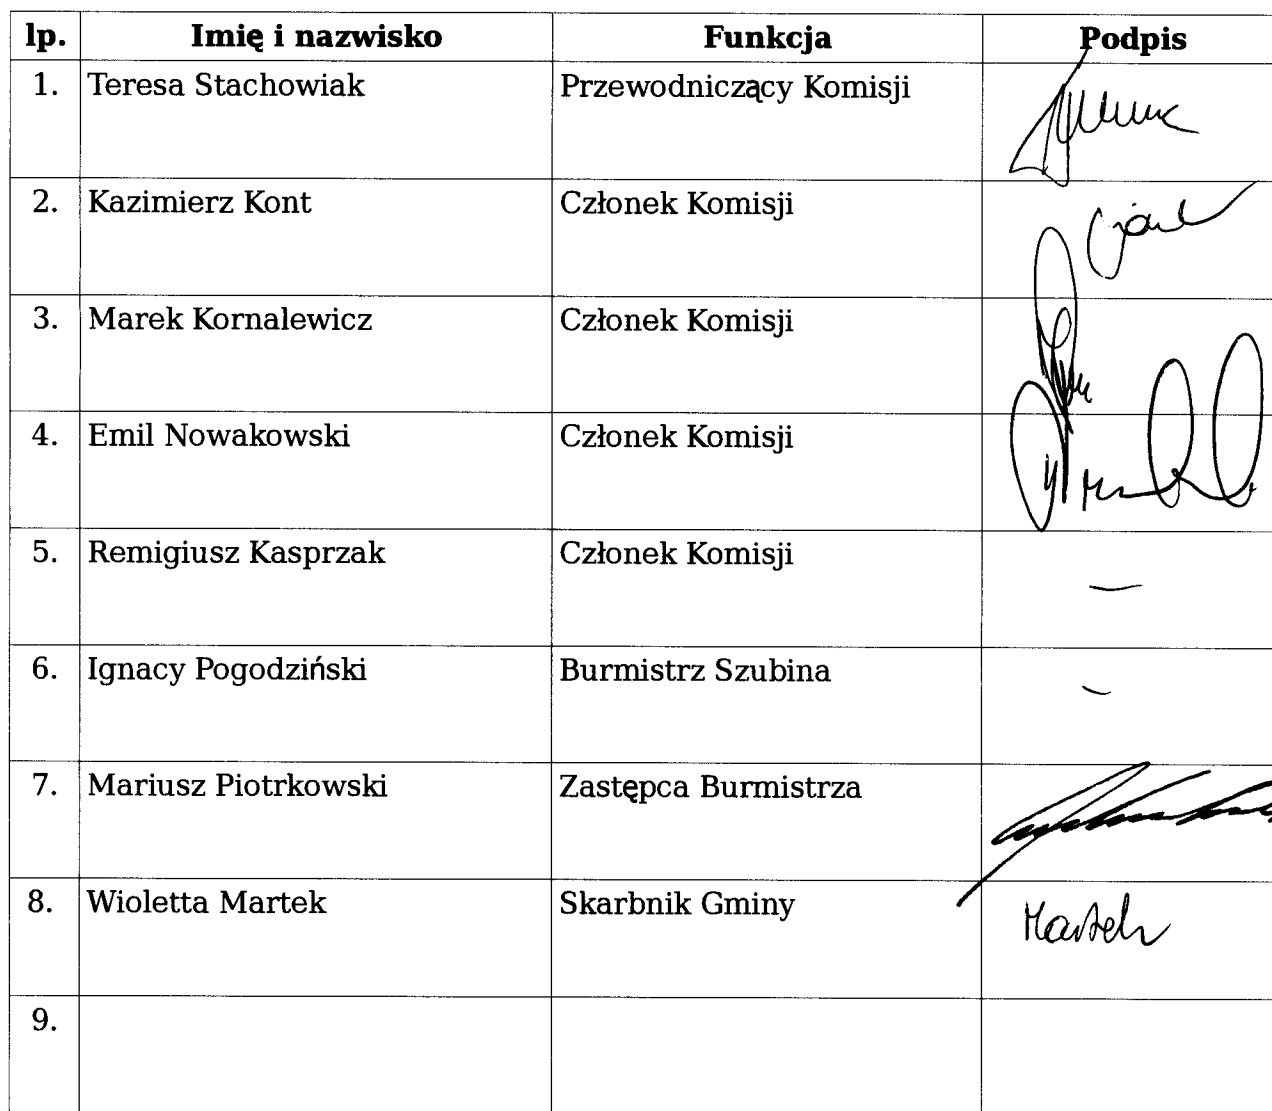 lp. Imię i nazwisko Funkcja Podpis
1. Teresa Stachowiak Przewodniczący Komisji
2. Kazimierz Kont Członek Komisji
3. Marek Kornalewicz Członek Komisji
4. Emil Nowakowski Członek Komisji
5. Remigiusz Kasprzak Członek Komisji —
6. Ignacy Pogodziński Burmistrz Szubina –
7. Mariusz Piotrkowski Zastępca Burmistrza
8. Wioletta Martek Skarbnik Gminy Martek
9.